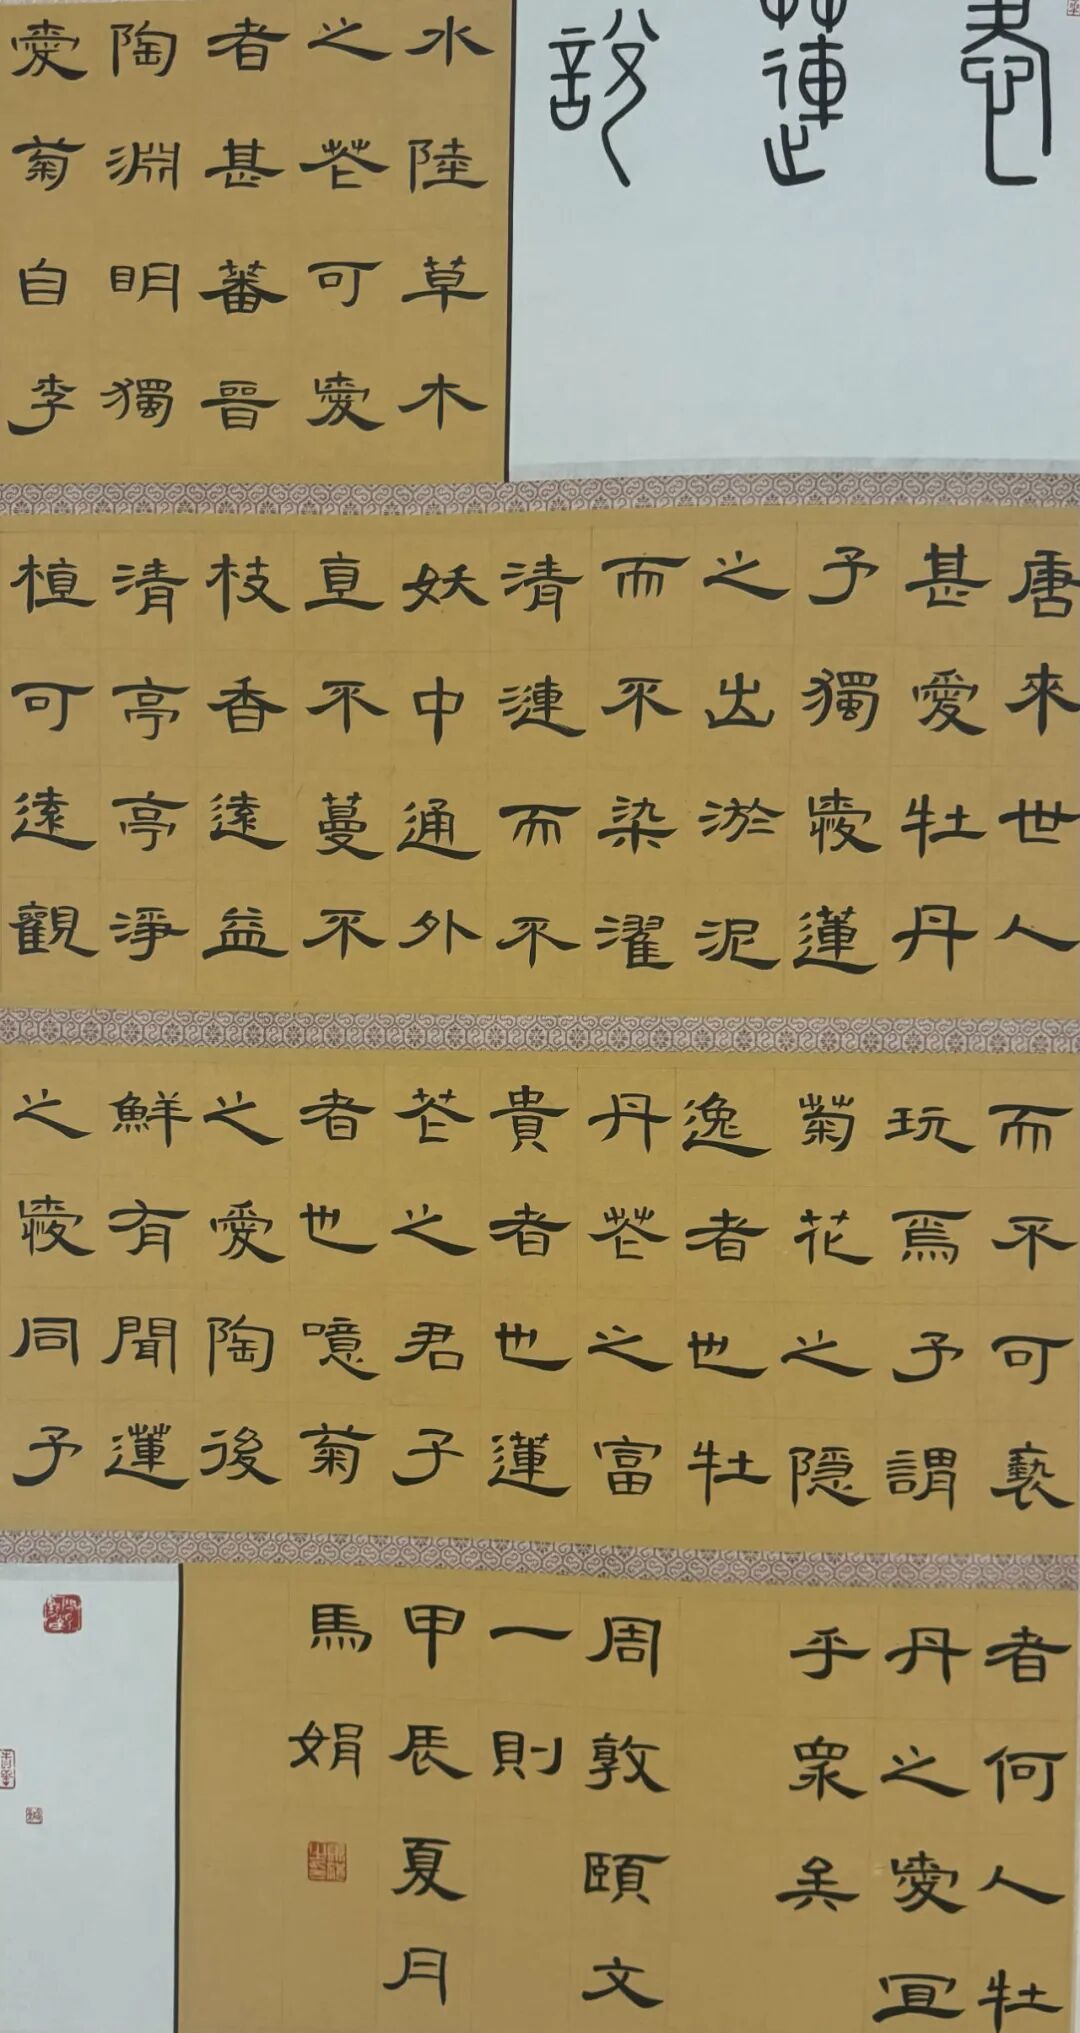 愛蓮說
水陸草木
之花可愛
者甚蕃晉
陶淵明獨
愛菊自李
唐來世人
甚愛牡丹
予獨愛蓮
之出淤泥
而不染濯
清漣而不
妖中通外
直不蔓不
枝香遠益
清亭亭淨
植可遠觀
而不可褻
玩焉予謂
菊花之隱
逸者也牡
丹花之富
貴者也蓮
花之君子
者也噫菊
之愛陶後
鮮有聞蓮
之愛同予
者何人牡
丹之愛宜
乎眾矣
周敦頤文
一則
甲辰夏月
馬娟